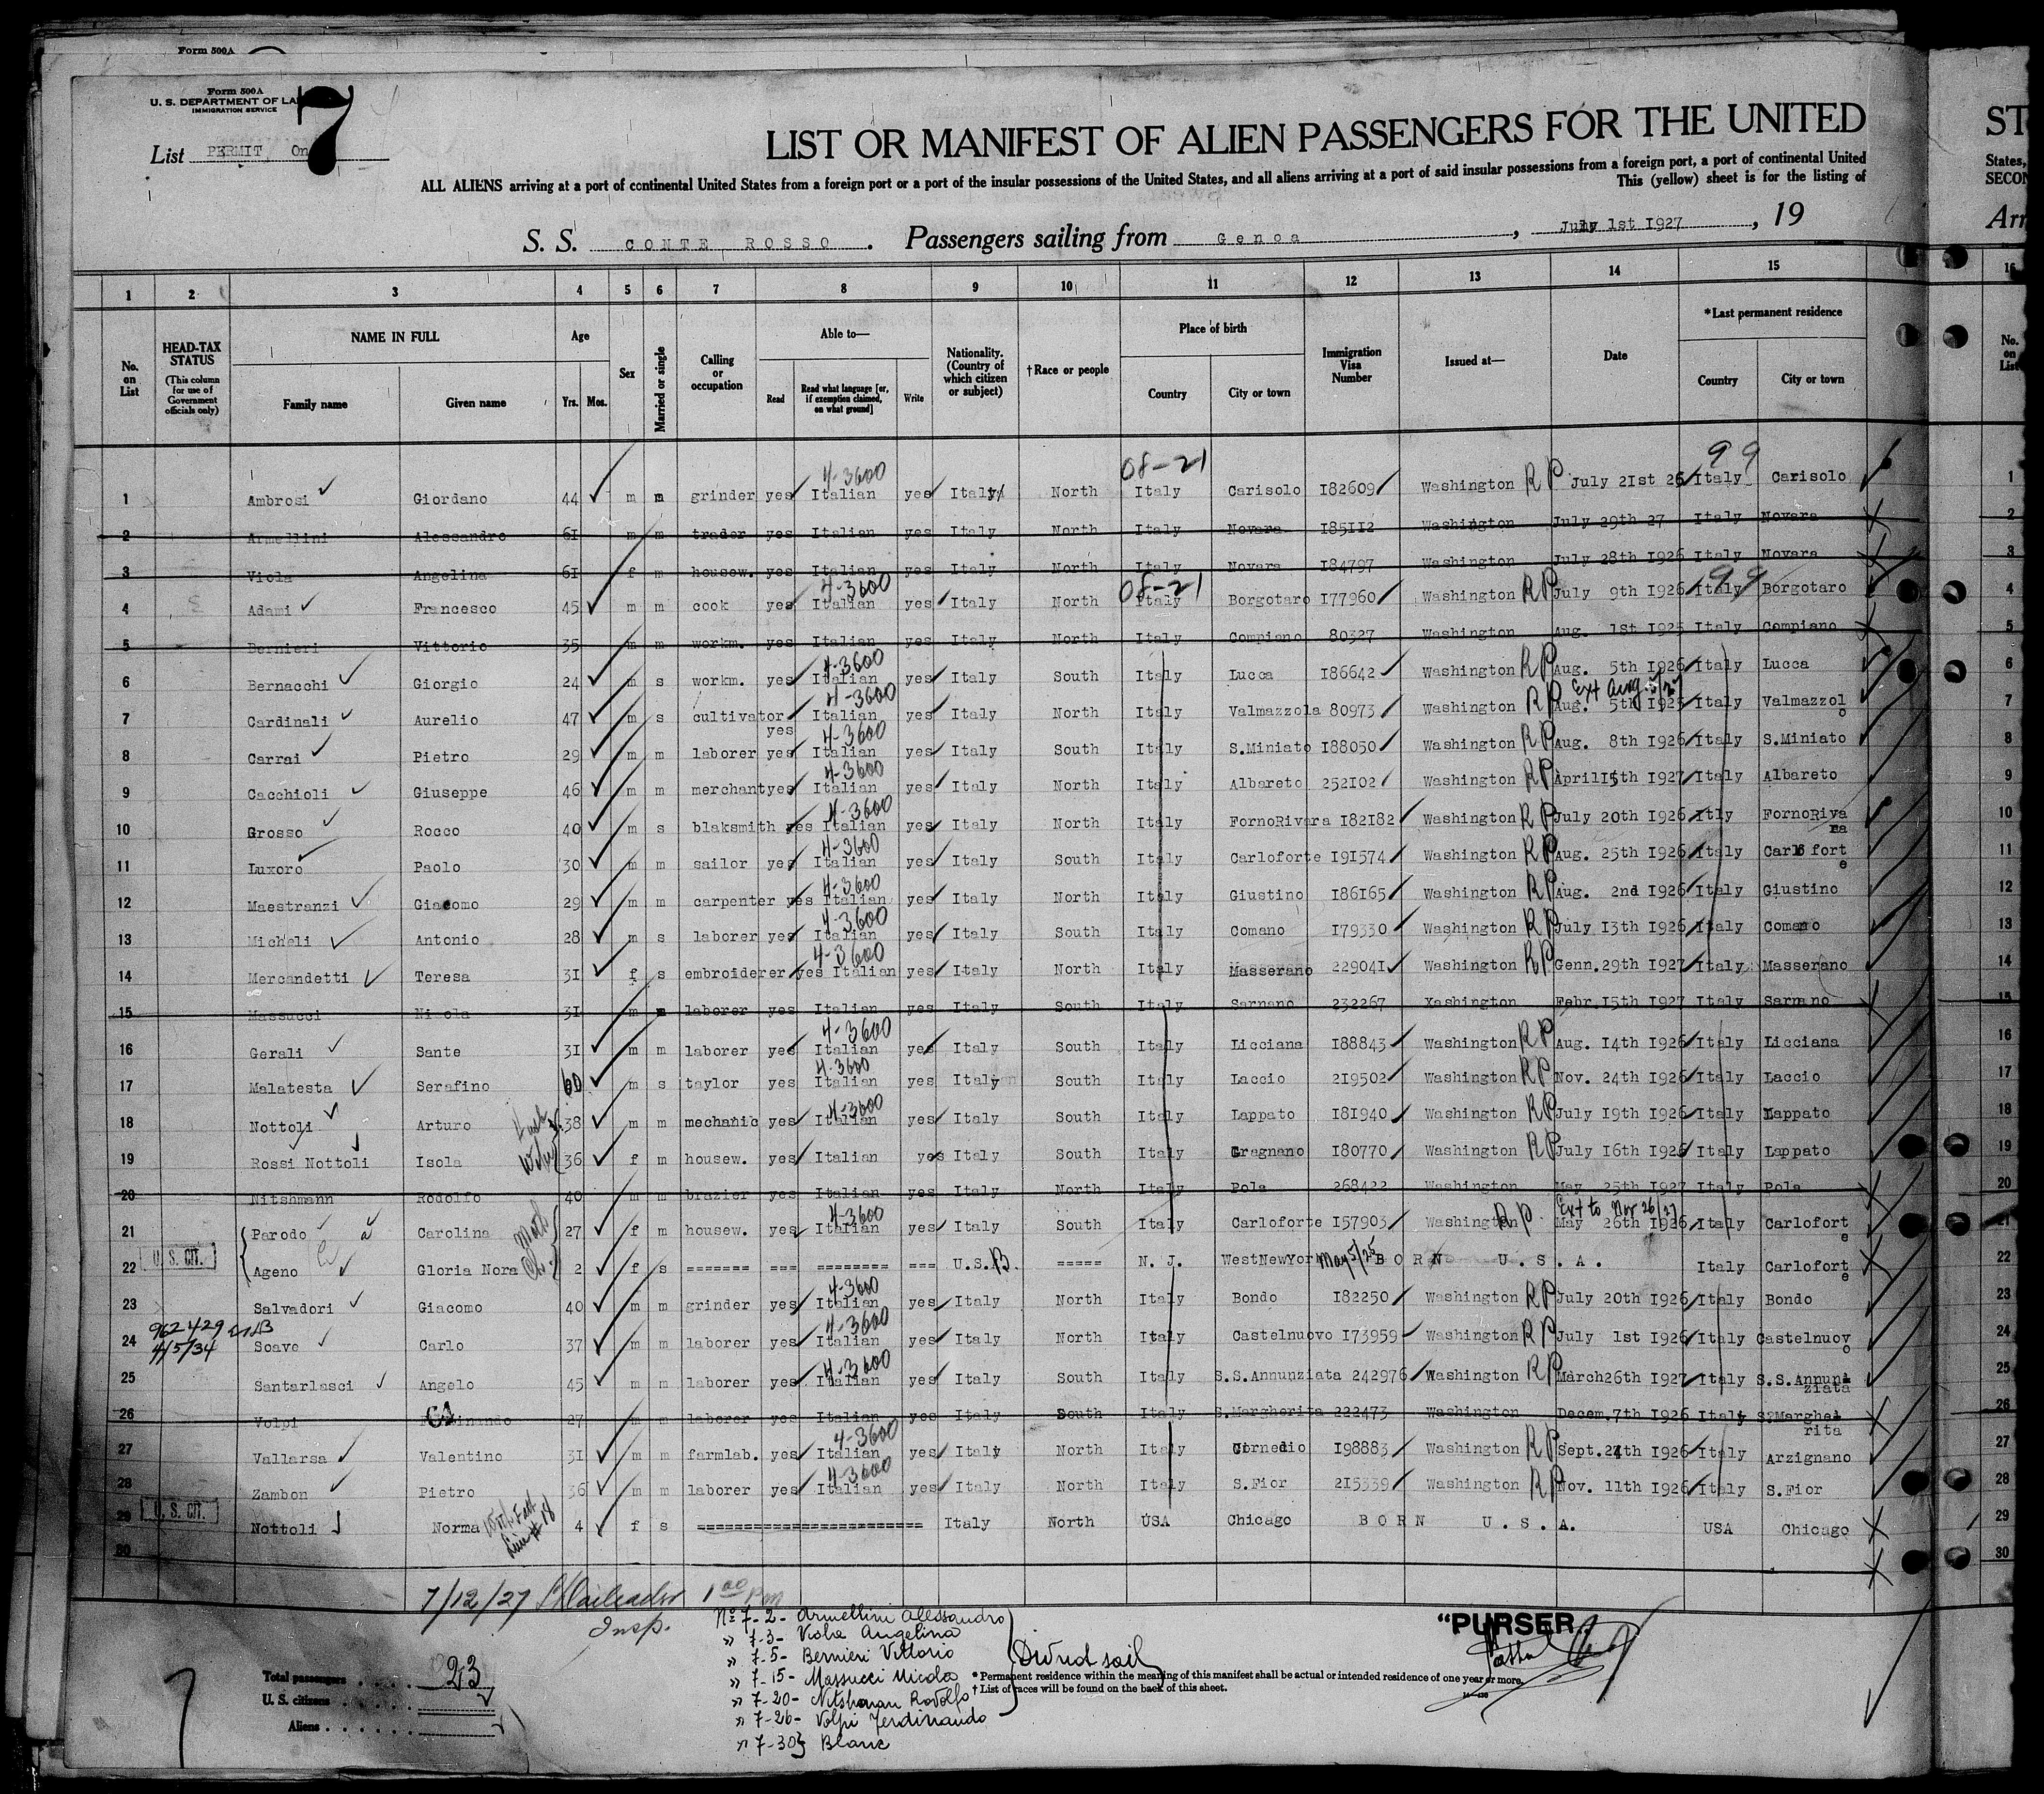 Form 500A
Form 500A
U. S. DEPARTMENT OF LA
IMMIGRATION SERVICE
7
List PERMIT On
LIST OR MANIFEST OF ALIEN PASSENGERS FOR THE UNITED
ST
ALL ALIENS arriving at a port of continental United States from a foreign port or a port of the insular possessions of the United States, and all aliens arriving at a port of said insular possessions from a foreign port, a port of continental United
States,
This (yellow) sheet is for the listing of
SECON
S. S. CONTE ROSSO . Passengers sailing from Genoa , July 1st 1927 , 19
Arr
1 2 3 4 5 6 7 8 9 10 11 12 13 14 15 16
No. on List HEAD-TAX STATUS (This column for use of Government officials only) NAME IN FULL Family name Given name Age Yrs. Mos. Sex Married or single Calling or occupation Able to— Read Read what language [or, if exemption claimed, on what ground] Write Nationality. (Country of which citizen or subject) †Race or people Place of birth Country City or town Immigration Visa Number Issued at— Date *Last permanent residence Country City or town No. on List
4-3600 08-21 99
1 Ambrosi Giordano 44 m m grinder yes Italian yes Italy North Italy Carisolo 182609 Washington R P July 21st 26 Italy Carisolo 1
2 Armellini Alessandro 61 m m trader yes Italian yes Italy North Italy Novara 185112 Washington July 29th 27 Italy Novara 2
3 Viola Angelina 61 f m housew. yes Italian yes Italy North Italy Novara 184797 Washington July 28th 1926 Italy Novara 3
4-3600 08-21 99
4 Adami Francesco 45 m m cook yes Italian yes Italy North Italy Borgotaro 177960 Washington R P July 9th 1926 Italy Borgotaro 4
5 Bernieri Vittorio 35 m m workm. yes Italian yes Italy North Italy Compiano 80327 Washington Aug. 1st 1925 Italy Compiano 5
4-3600
6 Bernacchi Giorgio 24 m s workm. yes Italian yes Italy South Italy Lucca 186642 Washington R P Aug. 5th 1926 Italy Lucca 6
4-3600 Ext Aug. 5/27
7 Cardinali Aurelio 47 m s cultivator yes Italian yes Italy North Italy Valmazzola 80973 Washington R P Aug. 5th 1925 Italy Valmazzolo 7
4-3600
8 Carrai Pietro 29 m m laborer yes Italian yes Italy South Italy S.Miniato 188050 Washington R P Aug. 8th 1926 Italy S.Miniato 8
4-3600
9 Cacchioli Giuseppe 46 m m merchant yes Italian yes Italy North Italy Albareto 252102 Washington R P April 15th 1927 Italy Albareto 9
4-3600
10 Grosso Rocco 40 m s blaksmith yes Italian yes Italy North Italy FornoRivara 182182 Washington R P July 20th 1926 Itly FornoRivara 10
4-3600
11 Luxoro Paolo 30 m m sailor yes Italian yes Italy South Italy Carloforte 191574 Washington R P Aug. 25th 1926 Italy Carloforte 11
4-3600
12 Maestranzi Giacomo 29 m m carpenter yes Italian yes Italy North Italy Giustino 186165 Washington R P Aug. 2nd 1926 Italy Giustino 12
4-3600
13 Micheli Antonio 28 m s laborer yes Italian yes Italy South Italy Comano 179330 Washington R P July 13th 1926 Italy Comano 13
4-3600
14 Mercandetti Teresa 31 f s embroiderer yes Italian yes Italy North Italy Masserano 229041 Washington R P Genn. 29th 1927 Italy Masserano 14
15 Massucci Nicola 31 m m laborer yes Italian yes Italy South Italy Sarnano 232267 Xashington Febr. 15th 1927 Italy Sarnano 15
4-3600
16 Gerali Sante 31 m m laborer yes Italian yes Italy South Italy Licciana 188843 Washington R P Aug. 14th 1926 Italy Licciana 16
4-3600
17 Malatesta Serafino 60 m s taylor yes Italian yes Italy South Italy Laccio 219502 Washington R P Nov. 24th 1926 Italy Laccio 17
4-3600
18 Nottoli Arturo 38 m m mechanic yes Italian yes Italy South Italy Lappato 181940 Washington R P July 19th 1926 Italy Lappato 18
19 Rossi Nottoli Isola Wife 36 f m housew. yes Italian yes Italy South Italy Gragnano 180770 Washington R P July 16th 1926 Italy Lappato 19
20 Nitshmann Rodolfo 40 m m brazier yes Italian yes Italy North Italy Pola 268422 Washington May 25th 1927 Italy Pola 20
4-3600 Ext to Nov 26/27
21 Parodo Carolina Moth 27 f m housew. yes Italian yes Italy South Italy Carloforte 157903 Washington R P May 26th 1926 Italy Carloforte 21
U. S. CIT.
22 Ageno Gloria Nora Ch. 2 f s ======= === ======== === U.S. B. ===== N. J. WestNewYor May 5/25 BORN U. S. A. Italy Carloforte 22
4-3600
23 Salvadori Giacomo 40 m m grinder yes Italian yes Italy North Italy Bondo 182250 Washington R P July 20th 1926 Italy Bondo 23
962429 4/5/34 4-3600
24 Soave Carlo 37 m m laborer yes Italian yes Italy North Italy Castelnuovo 173959 Washington R P July 1st 1926 Italy Castelnuovo 24
4-3600
25 Santarlasci Angelo 45 m m laborer yes Italian yes Italy South Italy S.S.Annunziata 242976 Washington R P March 26th 1927 Italy S.S.Annunziata 25
26 Volpi Ferdinando 27 m m laborer yes Italian yes Italy South Italy S.Margherita 222473 Washington Decem. 7th 1926 Italy S.Margherita 26
4-3600
27 Vallarsa Valentino 31 m m farmlab. yes Italian yes Italy North Italy Cornedio 198883 Washington R P Sept. 24th 1926 Italy Arzignano 27
4-3600
28 Zambon Pietro 36 m m laborer yes Italian yes Italy North Italy S.Fior 215339 Washington R P Nov. 11th 1926 Italy S.Fior 28
U. S. CIT.
29 Nottoli Norma With Fath Line # 18 4 f s ======================= Italy North USA Chicago BORN U. S. A. USA Chicago 29
30 30
7/12/27 1 00 Pm
Insp.
No 7-2- Armellini Alessandro
" 7-3- Viola Angelina
" 7-5- Bernieri Vittorio
" 7-15- Massucci Nicola
" 7-20- Nitshman Rodolfo
" 7-26- Volpi Ferdinando
" 7-30 } Blanc
Did not sail
"PURSER
Total passengers . . . . 23
U. S. citizens . . . . .
Aliens . . . . . .
* Permanent residence within the meaning of this manifest shall be actual or intended residence of one year or more.
† List of races will be found on the back of this sheet.
14—430